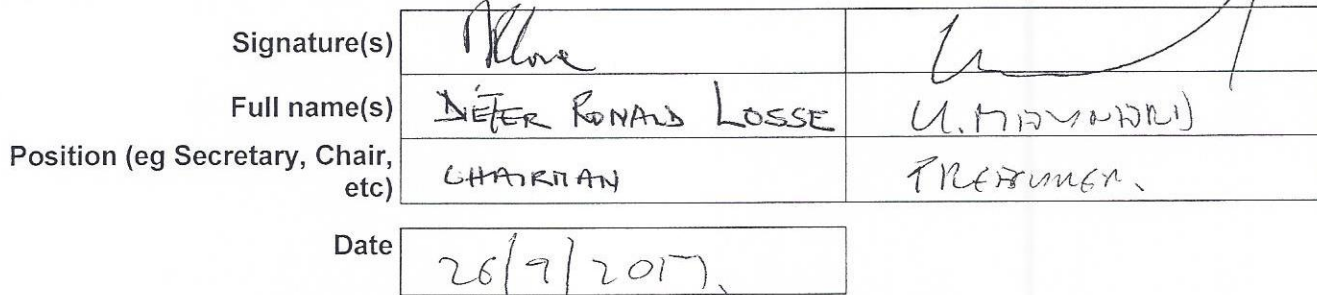 Signature(s)
Full name(s) DIETER RONALD LOSSE U. MAYNARD
Position (eg Secretary, Chair,
etc) CHAIRMAN TREASURER.
Date 26/9/2017.